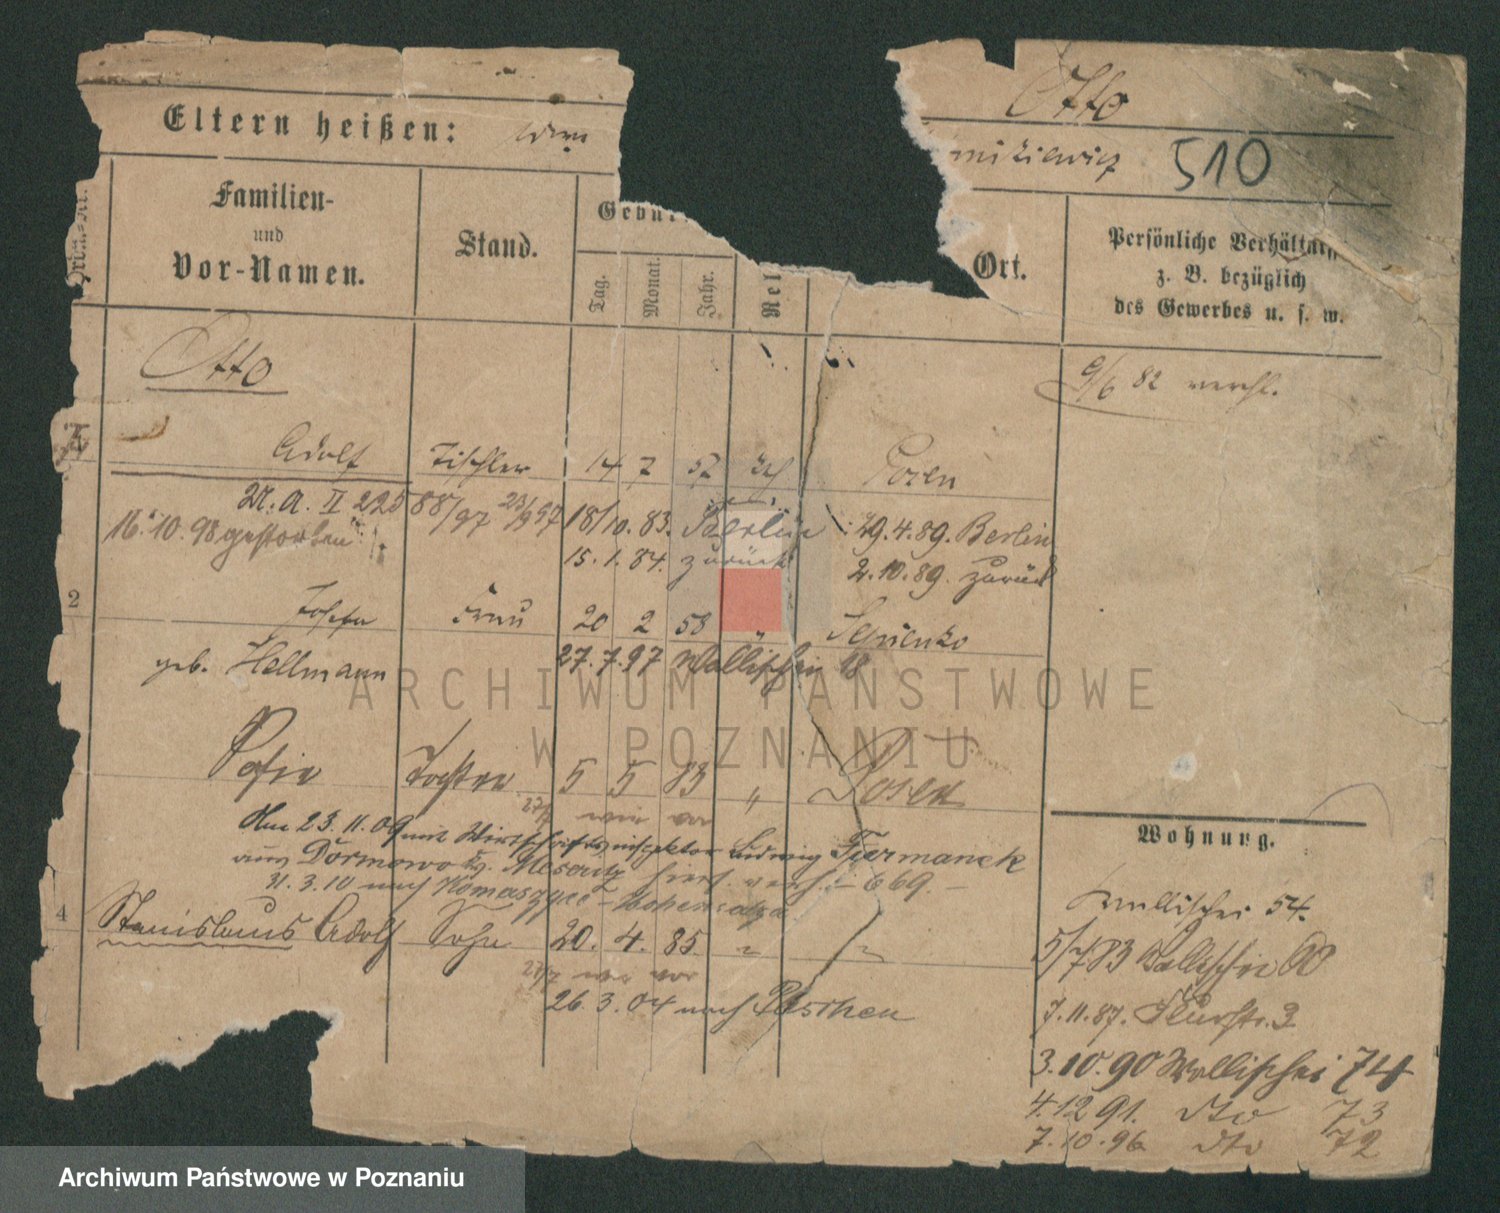 Otto
Eltern heißen:
510
Familien-
und
Vor-Namen.
Stand.
Tag.
Monat.
Jahr.
Rel
Ort.
Persönliche Verhältniss
z. B. bezüglich
des Gewerbes u. s. w.
Otto
9/6 82 verehl.
Adolf Tischler 14 7 57 Posen
M. A. II 225 88/97 23/9 97 18/10. 83. Berlin 29.4.89. Berlin
16.10.98 gestorben 15.1.84. zurück 2.10.89. zurück
2 Frau 20 2 58 "
geb. Hellmann 27.7.97 Wallischei 18
Tochter 5 5 83 " Posen
27/7 wie vor
Am 23.11.09 mit Wirtschaftsinspektor Ludwig
aus Dormowo Kr. Meseritz hier verh. - 669. -
31.3.10 nach - Hohensalza
4 Stanislaus Adolf Sohn 20. 4. 85. " "
27/7 wie vor
26.3.04 nach
Wohnung.
Wallischei 54.
5/7 83 Wallischei 60
7.11.87. Flurstr. 3
3.10.90 Wallischei 74
4.12 91. dto 73
7.10.96 dto 72
ARCHIWUM PAŃSTWOWE
W POZNANIU
Archiwum Państwowe w Poznaniu